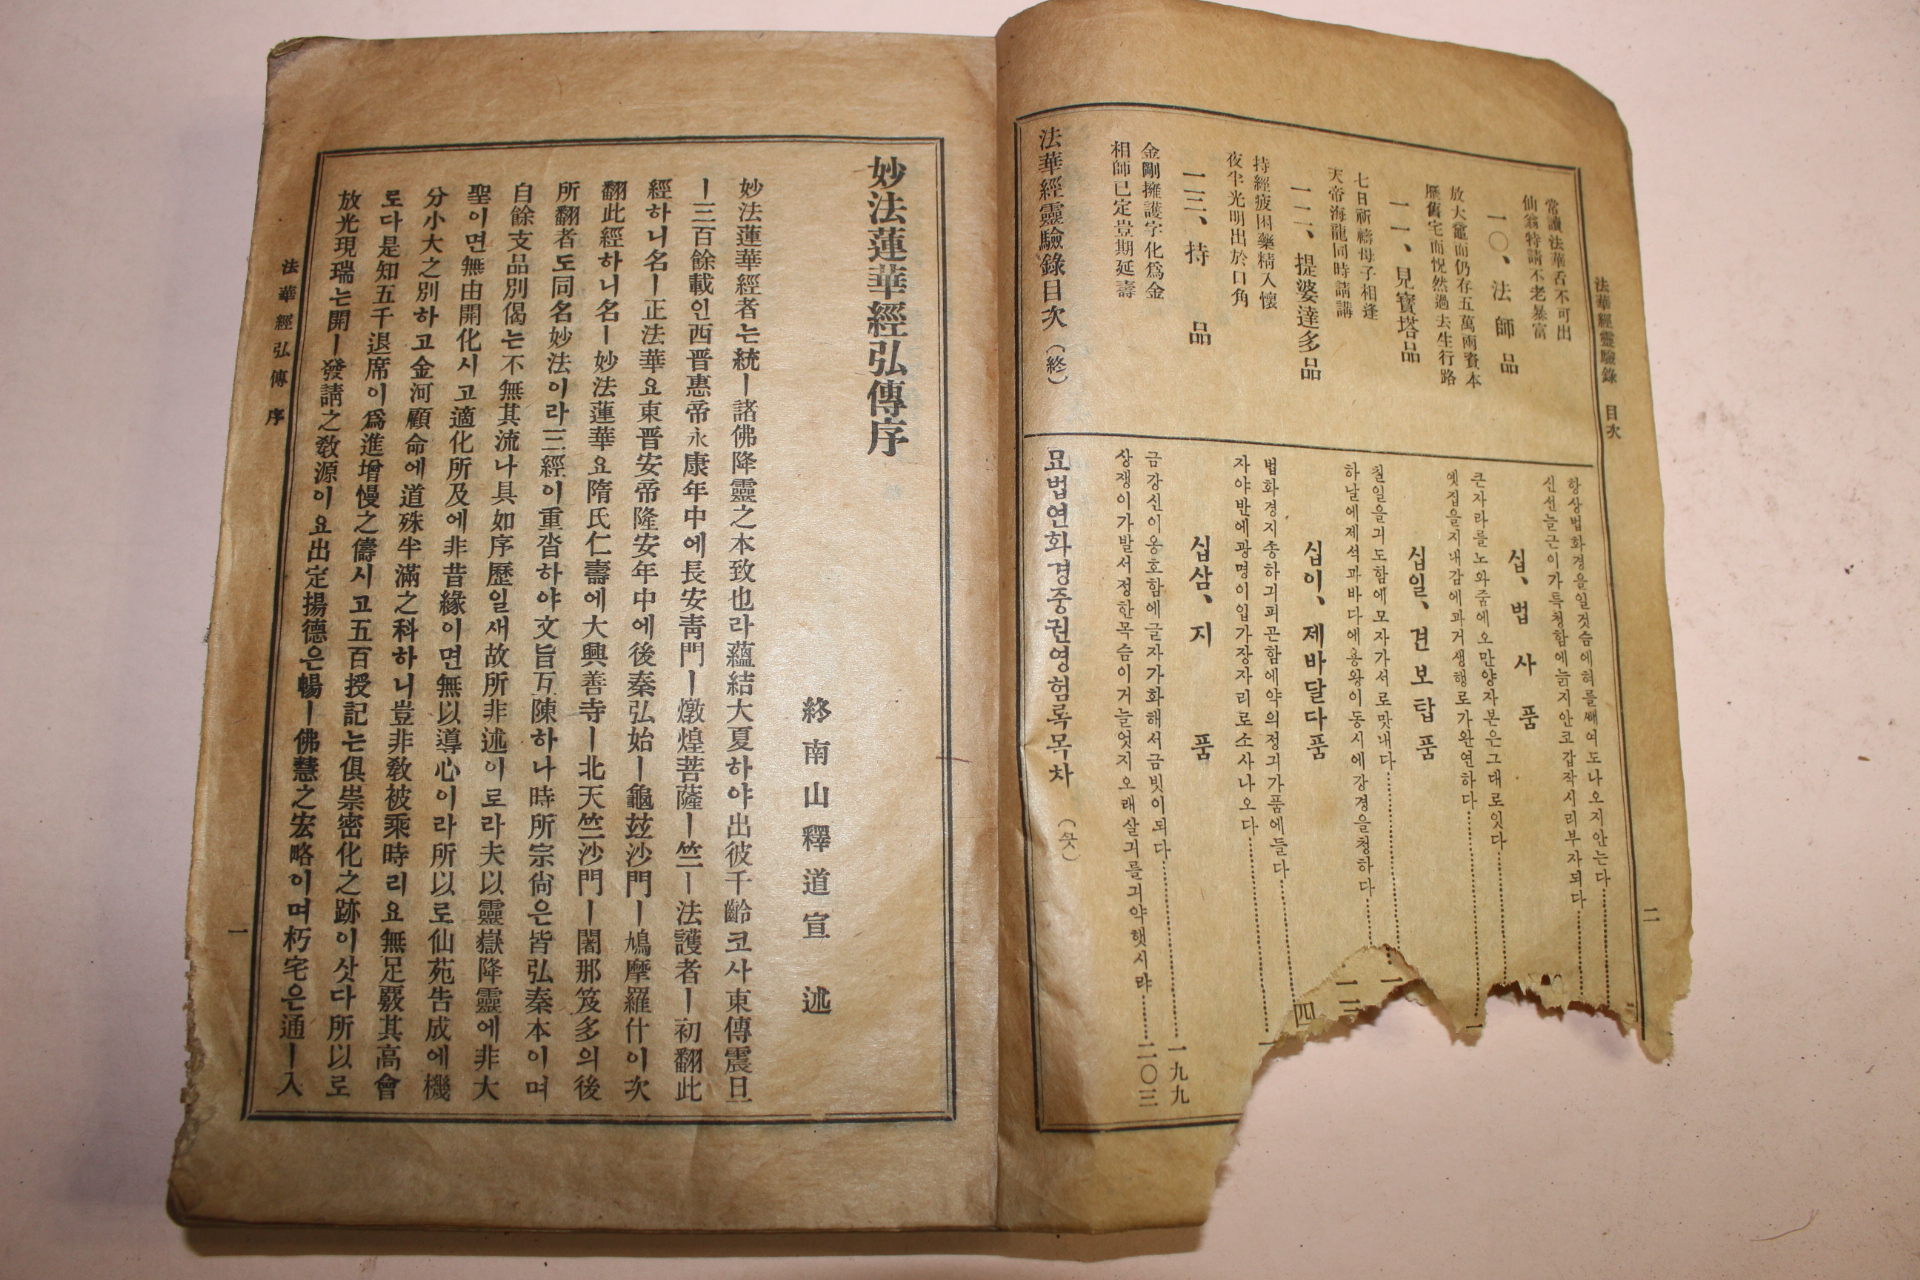 法華經靈驗錄 目次
二
常讀法華舌不可出
仙翁特請不老暴富
一〇、法師品
放大鼈而仍存五萬兩資本
歷舊宅而恍然過去生行路
一一、見寶塔品
七日祈禱母子相逢
天帝海龍同時請講
一二、提婆達多品
持經疲困藥精入懷
夜半光明出於口角
一三、持品
金剛擁護字化爲金
相師已定豈期延壽
法華經靈驗錄目次(終)
항상법화경을일것슴에혀를빼여도나오지안는다
신선늘근이가특청함에늙지안코갑작시리부자되다
십、법사품
큰자라를노와줌에오만양자본은그대로잇다
옛집을지내감에과거생행로가완연하다
십일、견보탑품
칠일을긔도함에모자가서로맛내다
하날에제석과바다에용왕이동시에강경을청하다
십이、제바달다품
법화경지송하긔피곤함에약의정긔가품에들다
자야반에광명이입가장자리로소사나오다
십삼、지품
금강신이옹호함에글자가화해서금빗이되다 一九九
상쟁이가발서정한목슴이거늘엇지오래살긔를긔약햇시랴 二〇三
묘법연화경중권영험록목차
妙法蓮華經弘傳序
終南山釋道宣 述
妙法蓮華經者는統ㅣ諸佛降靈之本致也라蘊結大夏하야出彼千齡코사東傳震旦
ㅣ三百餘載인西晋惠帝永康年中에長安靑門ㅣ燉煌菩薩ㅣ竺ㅣ法護者ㅣ初翻此
經하니名ㅣ正法華요東晋安帝隆安年中에後秦弘始ㅣ龜玆沙門ㅣ鳩摩羅什이次
翻此經하니名ㅣ妙法蓮華요隋氏仁壽에大興善寺ㅣ北天竺沙門ㅣ闍那笈多의後
所翻者도同名妙法이라三經이重沓하야文旨互陳하나時所宗尙은皆弘秦本이며
自餘支品別偈는不無其流나具如序歷일새故所非述이로라夫以靈嶽降靈에非大
聖이면無由開化시고適化所及에非昔緣이면無以導心이라所以로仙苑告成에機
分小大之別하고金河顧命에道殊半滿之科하니豈非敎被乘時리요無足覈其高會
로다是知五千退席이爲進增慢之儔시고五百授記는俱崇密化之跡이삿다所以로
放光現瑞는開ㅣ發請之敎源이요出定揚德은暢ㅣ佛慧之宏略이며朽宅은通ㅣ入
法華經弘傳 序
一